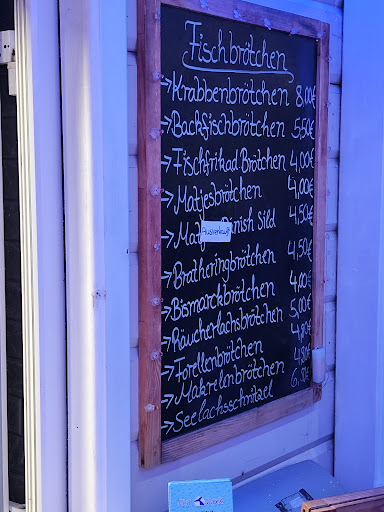 Fischbrötchen
→Krabbenbrötchen 8,00€
→Backfischbrötchen 5,50€
→Fischfrikad. Brötchen 4,00€
→Matjesbrötchen 4,00€
→Mat Dinish Sild 4,50€
Ausverkauft
→Bratheringbrötchen 4,50€
→Bismarckbrötchen 4,00€
→Räucherlachsbrötchen 5,00€
→Forellenbrötchen 4,80€
→Makrelenbrötchen 4,50€
→Seelachsschnitzel